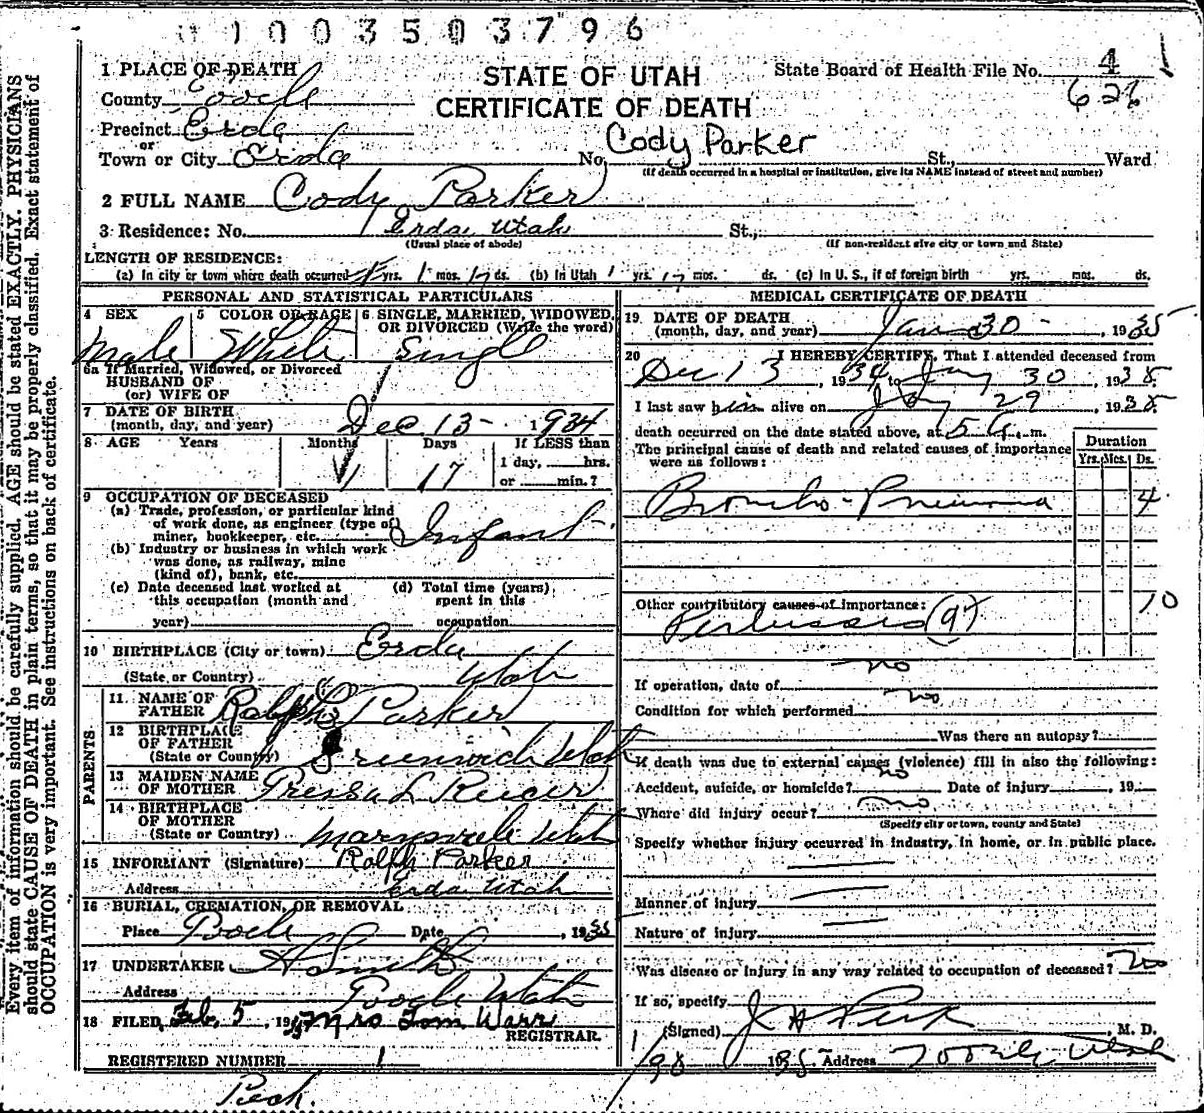 1003503796
1 PLACE OF DEATH
STATE OF UTAH
State Board of Health File No. 4
County Tooele
CERTIFICATE OF DEATH
626
Precinct Erda
or
Cody Parker
Town or City Erda No. St., Ward
(If death occurred in a hospital or institution, give its NAME instead of street and number)
2 FULL NAME Cody Parker
3 Residence: No. Erda, Utah St.,
(Usual place of abode) (If non-resident give city or town and State)
LENGTH OF RESIDENCE:
(a) In city or town where death occurred yrs. 1 mos. 17 ds. (b) In Utah 1 yrs. 17 mos. ds. (c) In U. S., if of foreign birth yrs. mos. ds.
PERSONAL AND STATISTICAL PARTICULARS
4 SEX 5 COLOR OR RACE 6 SINGLE, MARRIED, WIDOWED,
OR DIVORCED (Write the word)
Male White Single
6a If Married, Widowed, or Divorced
HUSBAND OF
(or) WIFE OF
7 DATE OF BIRTH
(month, day, and year) Dec 13 - 1934
8 AGE Years Months Days If LESS than
1 17 1 day, hrs.
or min.?
9 OCCUPATION OF DECEASED
(a) Trade, profession, or particular kind
of work done, as engineer (type of)
miner, bookkeeper, etc. Infant
(b) Industry or business in which work
was done, as railway, mine
(kind of), bank, etc.
(c) Date deceased last worked at (d) Total time (years)
this occupation (month and spent in this
year) occupation
10 BIRTHPLACE (City or town) Erda
(State or Country) Utah
PARENTS
11 NAME OF
FATHER Ralph Parker
12 BIRTHPLACE
OF FATHER
(State or Country) Greenwich Utah
13 MAIDEN NAME
OF MOTHER
14 BIRTHPLACE
OF MOTHER
(State or Country) Marysvale Utah
15 INFORMANT (Signature) Ralph Parker
Address Erda Utah
16 BURIAL, CREMATION, OR REMOVAL
Place Date , 1935
17 UNDERTAKER A Smith
Address Tooele Utah
18 FILED Feb. 5, 19 Mrs Tom Warr
REGISTRAR.
REGISTERED NUMBER 1
Peck.
MEDICAL CERTIFICATE OF DEATH
19 DATE OF DEATH
(month, day, and year) Jan 30 - , 1935
20 I HEREBY CERTIFY, That I attended deceased from
Dec 13, 1934 to Jan 30, 1935
I last saw him alive on Jan 29, 1935
death occurred on the date stated above, at 5 a. m.
The principal cause of death and related causes of importance
were as follows:
Duration
Yrs. Mos. Ds.
Broncho-Pneumonia 4
Other contributory causes of importance: 10
Pertussis (9)
no
If operation, date of
no
Condition for which performed
Was there an autopsy?
If death was due to external causes (violence) fill in also the following:
no
Accident, suicide, or homicide? Date of injury , 19
no
Where did injury occur?
(Specify city or town, county and State)
Specify whether injury occurred in industry, in home, or in public place.
Manner of injury
Nature of injury
Was disease or injury in any way related to occupation of deceased? no
If so, specify
(Signed) J H Peck, M. D.
1935 Address Tooele Utah
Every item of information should be carefully supplied. AGE should be stated EXACTLY. PHYSICIANS
should state CAUSE OF DEATH in plain terms, so that it may be properly classified. Exact statement of
OCCUPATION is very important. See instructions on back of certificate.